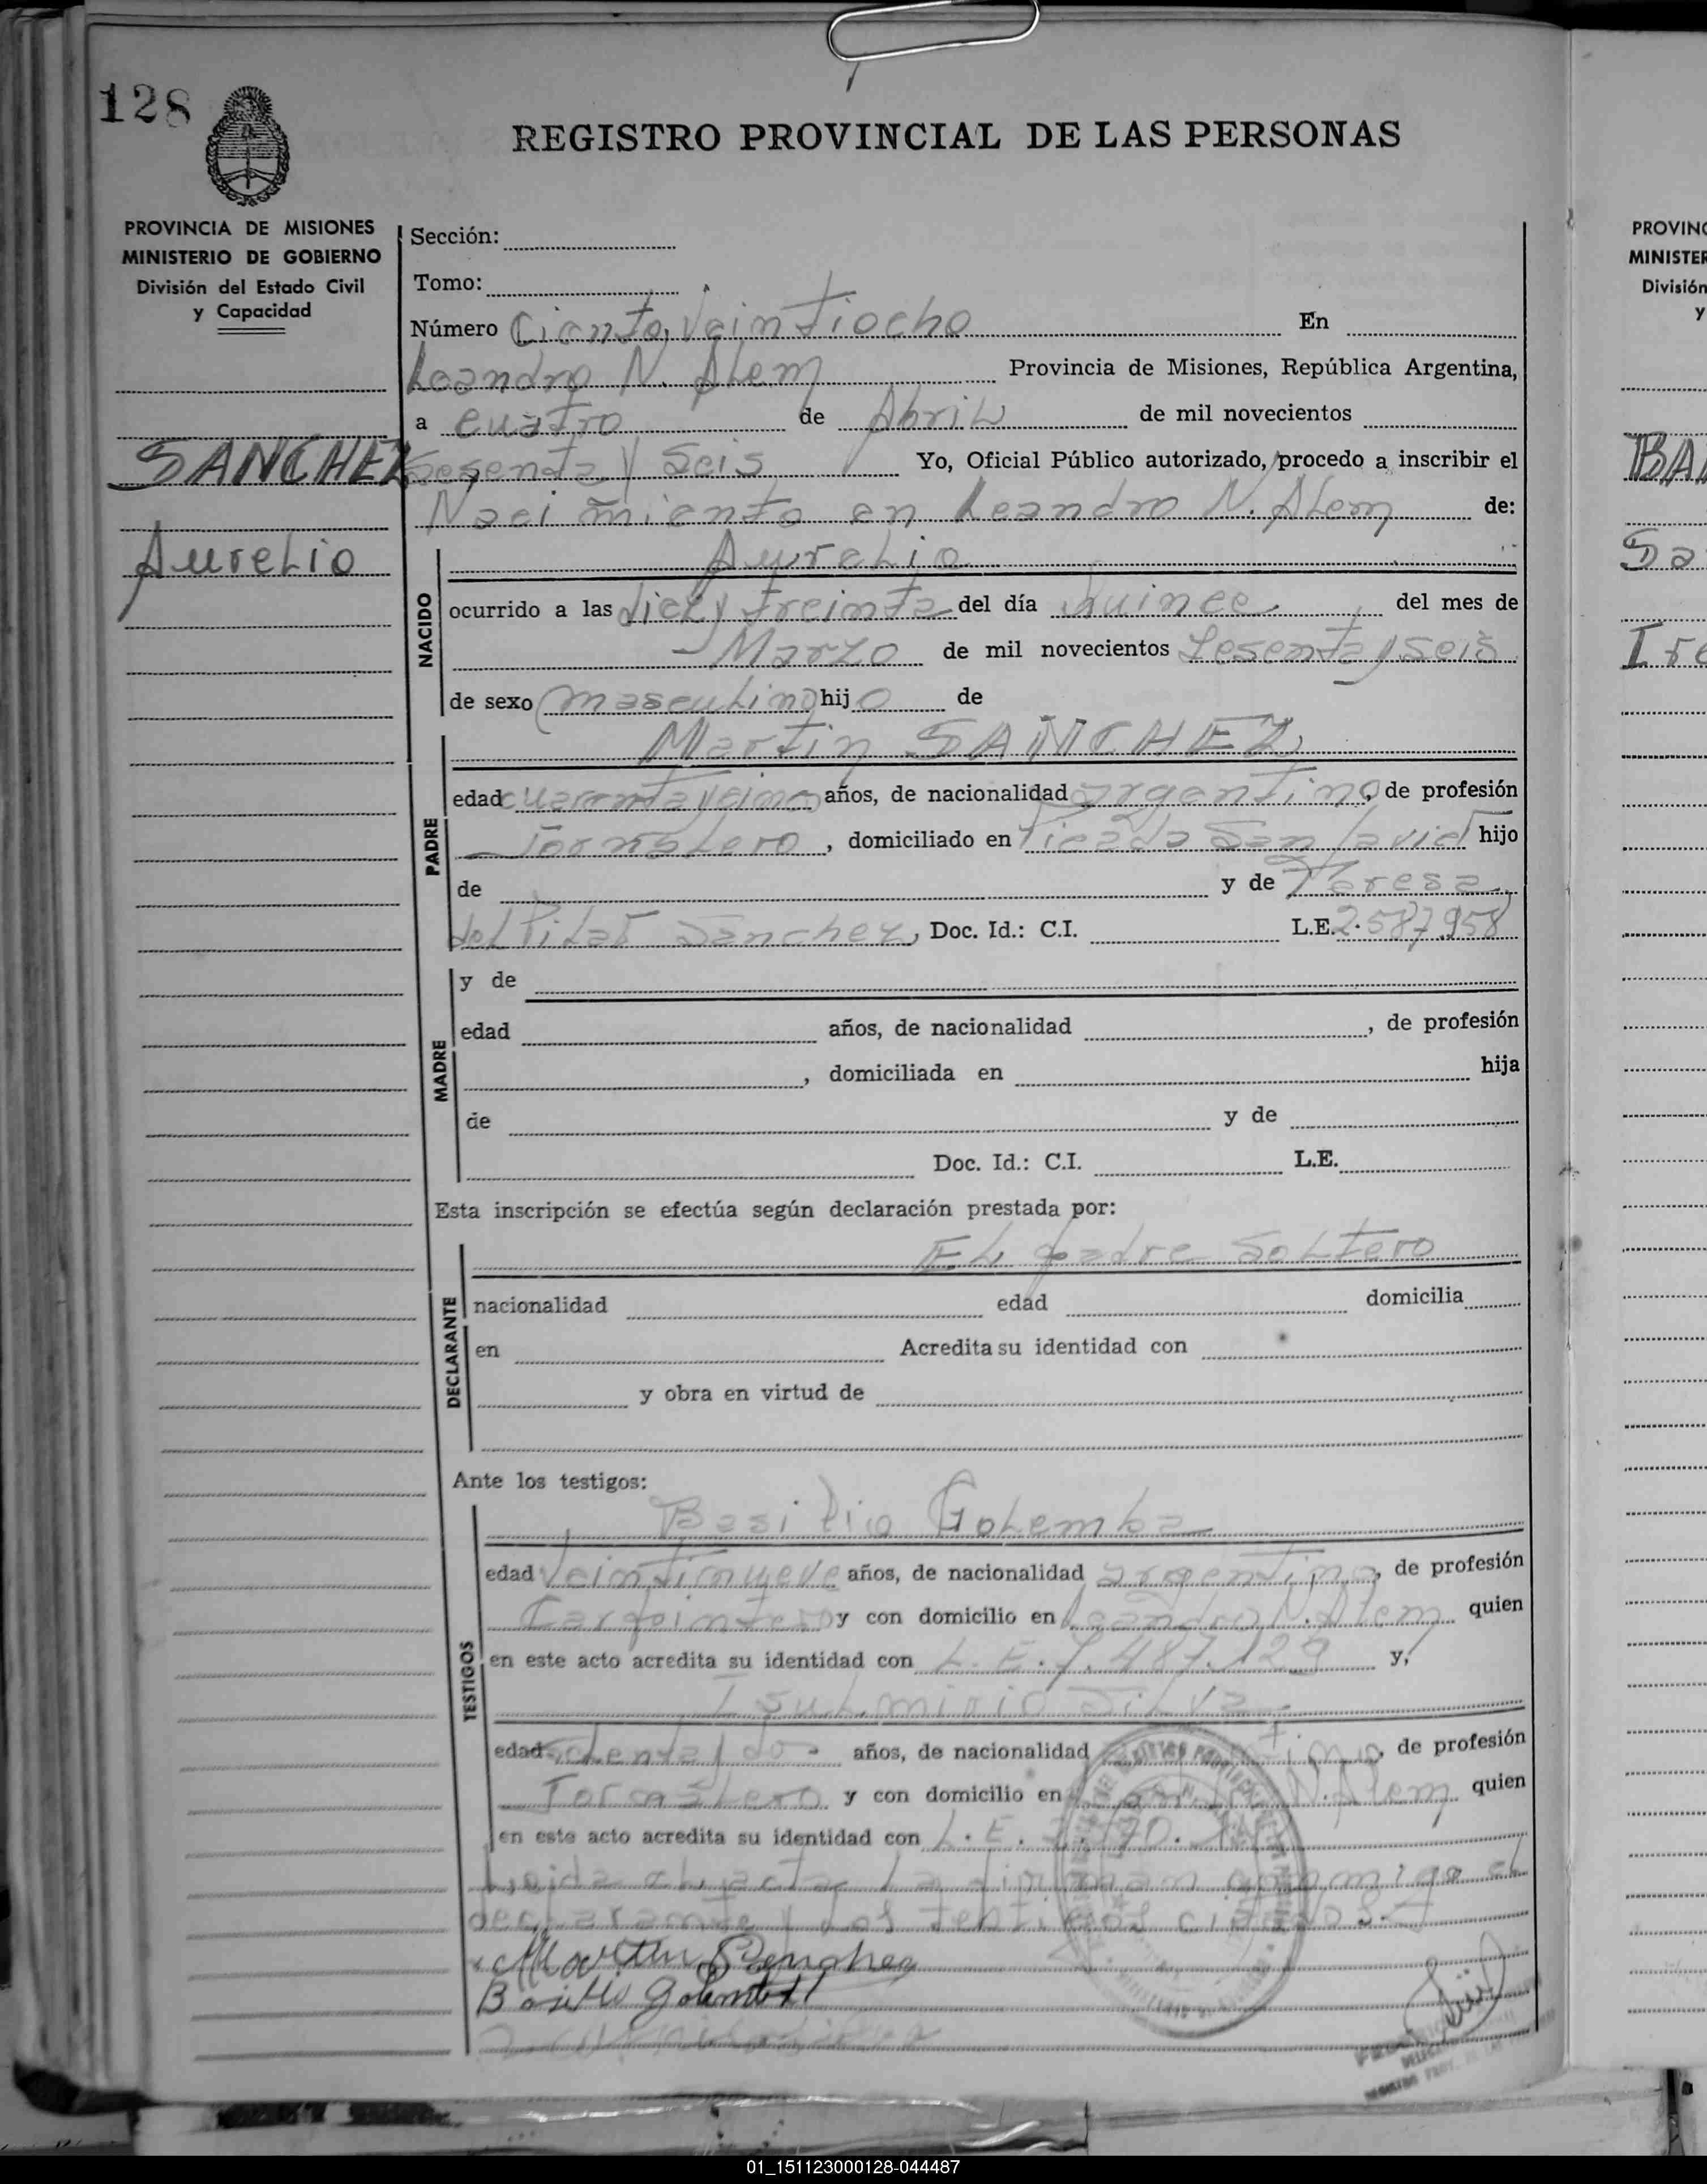 128
REGISTRO PROVINCIAL DE LAS PERSONAS
PROVINCIA DE MISIONES
MINISTERIO DE GOBIERNO
División del Estado Civil
y Capacidad
SANCHEZ
Aurelio
Sección:
Tomo:
Número Ciento Veintiocho En
Leandro N. Alem Provincia de Misiones, República Argentina,
a cuatro de Abril de mil novecientos
sesenta y Seis Yo, Oficial Público autorizado, procedo a inscribir el
Nacimiento en Leandro N. Alem de:
NACIDO
Aurelio
ocurrido a las diez y treinta del día quince del mes de
Marzo de mil novecientos Sesenta y seis
de sexo masculino hijo de
PADRE
Martin SANCHEZ
edad cuarenta y cinco años, de nacionalidad argentino, de profesión
Jornalero, domiciliado en Picada San Javier hijo
de y de Teresa
del Pilar Sanchez, Doc. Id.: C.I. L.E. 2.587.958
MADRE
y de
edad años, de nacionalidad , de profesión
, domiciliada en hija
de y de
Doc. Id.: C.I. L.E.
Esta inscripción se efectúa según declaración prestada por:
DECLARANTE
El padre soltero
nacionalidad edad domicilia
en Acredita su identidad con
y obra en virtud de
Ante los testigos:
TESTIGOS
Basilio Golemba
edad Veintinueve años, de nacionalidad argentino, de profesión
Carpintero y con domicilio en Leandro N. Alem quien
en este acto acredita su identidad con L.E. 7.487.129 y,
Silva
edad años, de nacionalidad , de profesión
Jornalero y con domicilio en N. Alem quien
en este acto acredita su identidad con L.E.
Leida el acta la firman conmigo el
declarante y los testigos citados.
Martin Sanchez
Basilio Golemba
PROVINC
MINISTER
División
y
BA
Sa
Ire
01_151123000128-044487